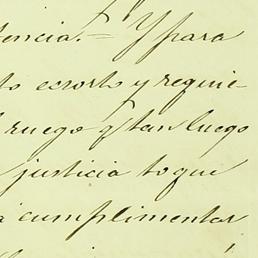 tencia.= Y para
to ecsorto y requie-
ruego q.e tan luego
justicia toque
a cumplimentar